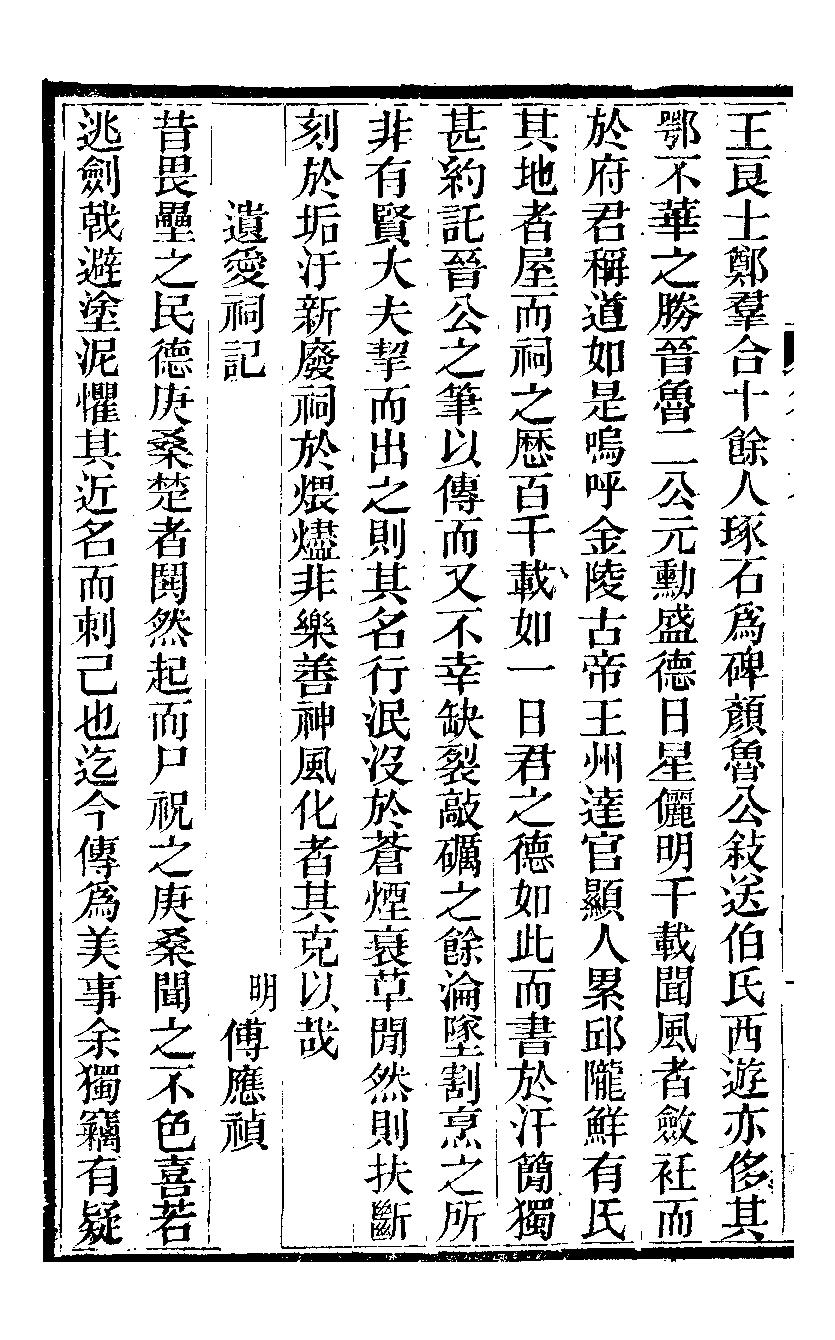 王良士鄭羣合十餘人琢石爲碑顏魯公敍送伯氏西遊亦侈其
鄂不華之勝晉魯二公元勳盛德日星儷明千載聞風者斂衽而
於府君稱道如是嗚呼金陵古帝王州達官顯人累邱隴鮮有氏
其地者屋而祠之歷百千載如一日君之德如此而書於汗簡獨
甚約託晉公之筆以傳而又不幸缺裂敲礪之餘淪墜割烹之所
非有賢大夫挈而出之則其名行泯沒於蒼煙衰草閒然則扶斷
刻於垢汙新廢祠於煨燼非樂善神風化者其克以哉
遺愛祠記
明傅應禎
昔畏壘之民德庚桑楚者鬨然起而尸祝之庚桑聞之不色喜若
逃劍戟避塗泥懼其近名而刺己也迄今傳爲美事余獨竊有疑